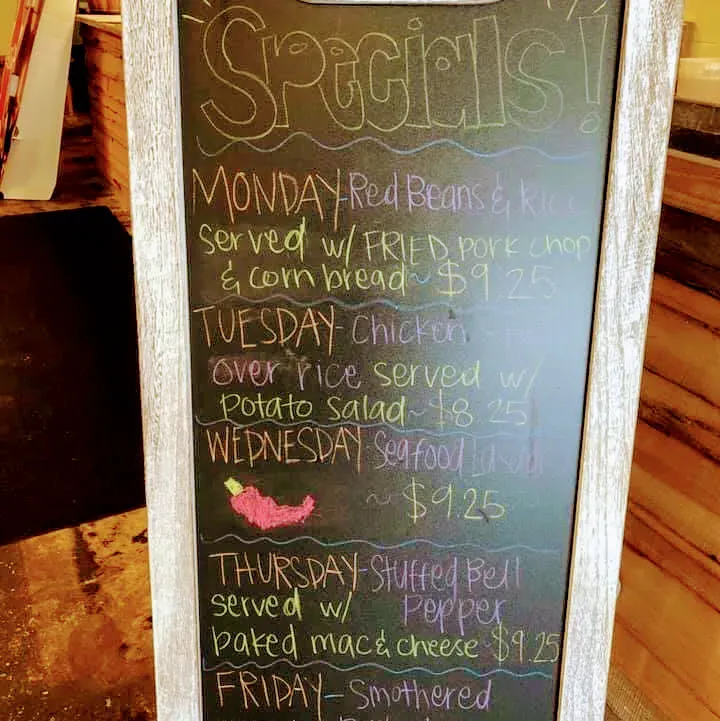 Specials!
MONDAY-Red Beans & Rice
served w/ FRIED pork chop
& corn bread ~ $9.25
TUESDAY-Chicken
over rice served w/
potato salad ~ $8.25
WEDNESDAY Seafood
~ $9.25
THURSDAY-Stuffed Bell
served w/ Pepper
baked mac & cheese $9.25
FRIDAY-Smothered